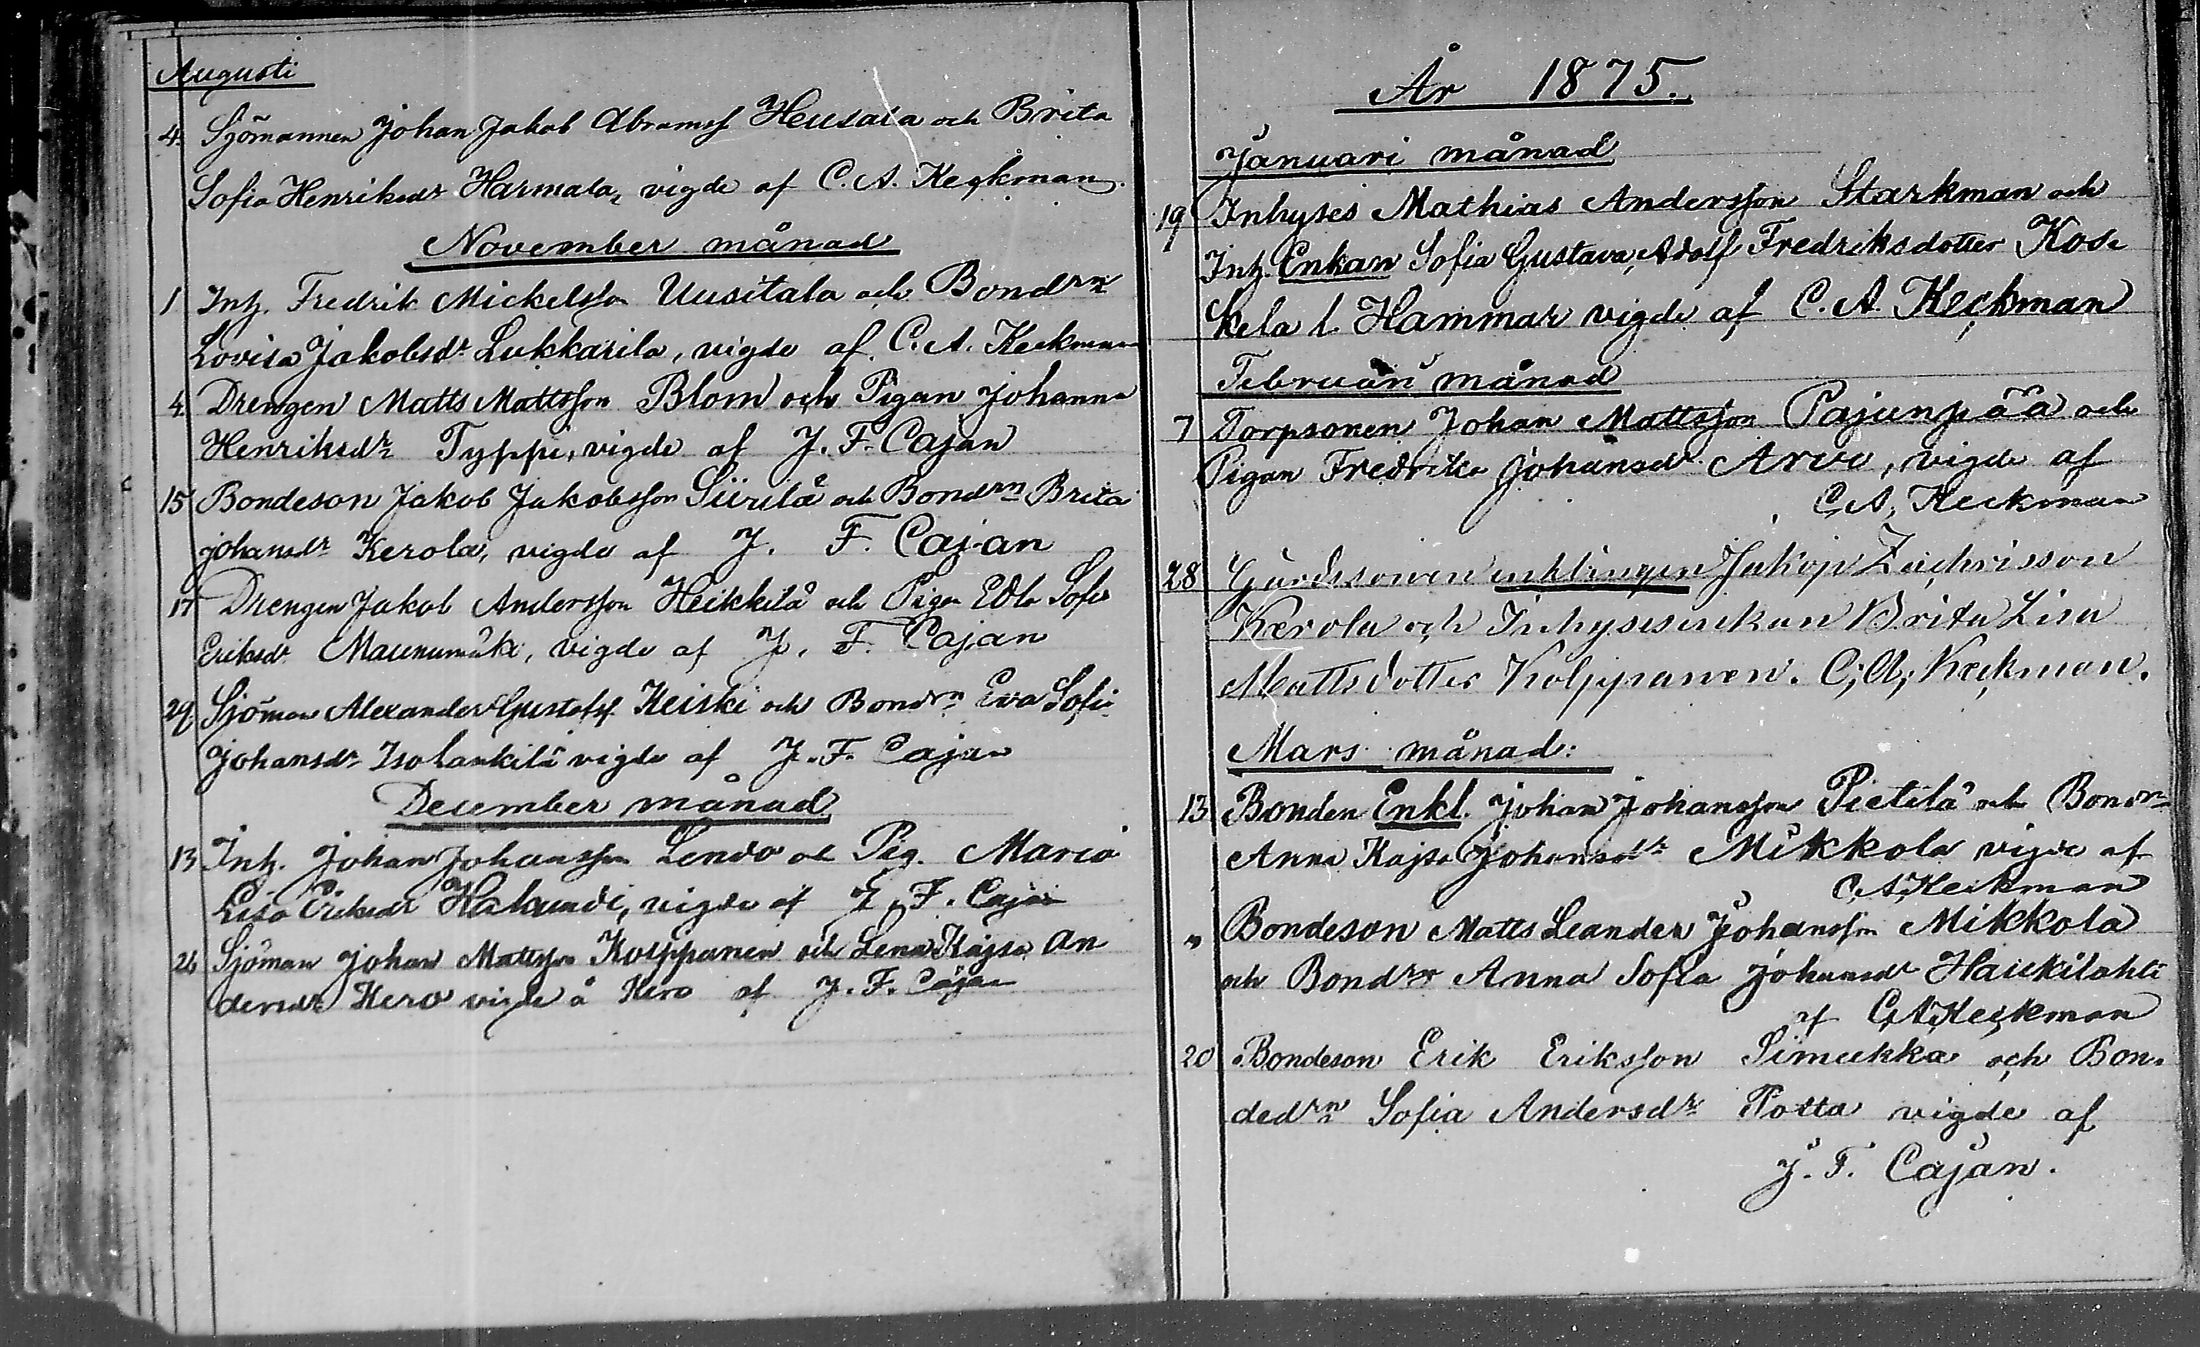 Augusti
4. Sjömannen Johan Jakob Abramsf Heusala och Brita
Sofia Henriksdr Harmala, vigde af C. A. Keckman.
November månad
1 Inh. Fredrik Mickelsson Uusitalo och Bondrn
Lovisa Jakobsdr Lukkarila, vigde af C. A. Keckman
4. Drengen Matts Mattsson Blom och Pigan Johanna
Henriksdr Typpi, vigde af J. F. Cajan
15 Bondeson Jakob Jakobsson Siirilä och Bondrn Brita
Johansdr Kerola, vigde af J. F. Cajan
17 Drengen Jakob Andersson Heikkilä och Pigan Edla Sofia
Eriksdr Maunumäki, vigde af J. F. Cajan
29. Sjöman Alexander Gustafsf Keiski och Bondrn Eva Sofia
Johansdr Isolankila vigde af J. F. Cajan
December månad
13 Inh. Johan Johansson Lendo oc Pig. Maria
Lisa Eriksdr vigde af J. F. Cajan
26 Sjöman Johan Mattsson Kolppanen och Lena Kajsa An
dersdr Kero vigde å Kero af J. F. Cajan
År 1875.
Januari månad
19 Inhyses Mathias Andersson Starkman och
Inh. Enkan Sofia Gustava, Adolf Fredriksdotter Kos-
kela l. Hammar vigde af C. A. Keckman
Februari månad
7 Torpsonen Johan Mattsson Pajunpää och
Pigan Fredrika Johansdr Arvo, vigde af
C. A. Keckman
28 Gårdssonen enklingen Jakop Zachrisson
Kerola och Inhysesenkan Brita Lisa
Mattsdotter Kolppanen. C. A. Keckman.
Mars månad:
13 Bonden Enkl. Johan Johansson Pietilä och Bondrn
Anna Kajsa Johansdr Mikkola vigde af
C. A. Keckman
" Bondeson Matts Leander Johansson Mikkola
och Bondrn Anna Sofia Johansdr Haukilahti
af C. A. Keckman
20 Bondeson Erik Eriksson Simukka och Bon-
dedrn Sofia Andersdr Potta vigde af
J. F. Cajan.